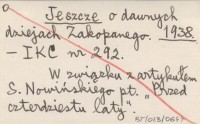 Jeszcze o dawnych
dziejach Zakopanego. 1938
– IKC nr 292.
W związku z artykułem
S. Nowińskiego pt. „Przed
czterdziestu laty".